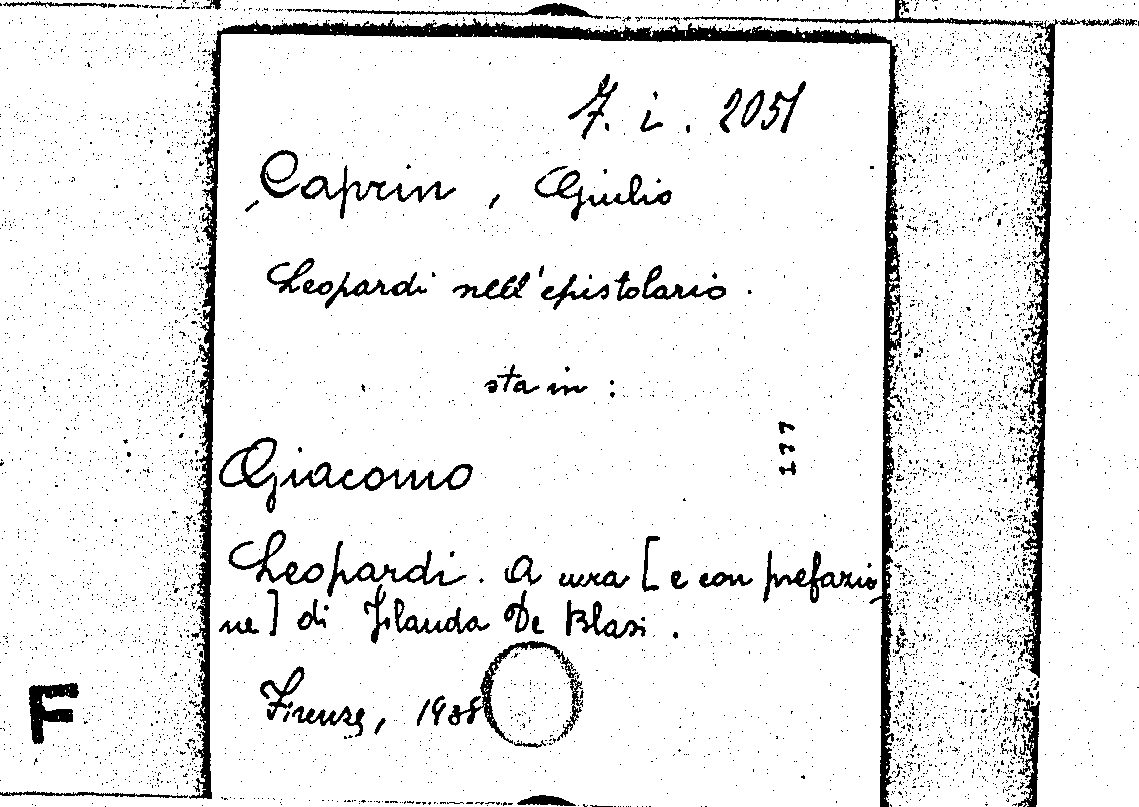 7. i. 2051
Caprin, Giulio
Leopardi nell'epistolario.
sta in :
177
Giacomo
Leopardi. A cura [e con prefazio
ne] di Jolanda De Blasi.
Firenze, 1938
F